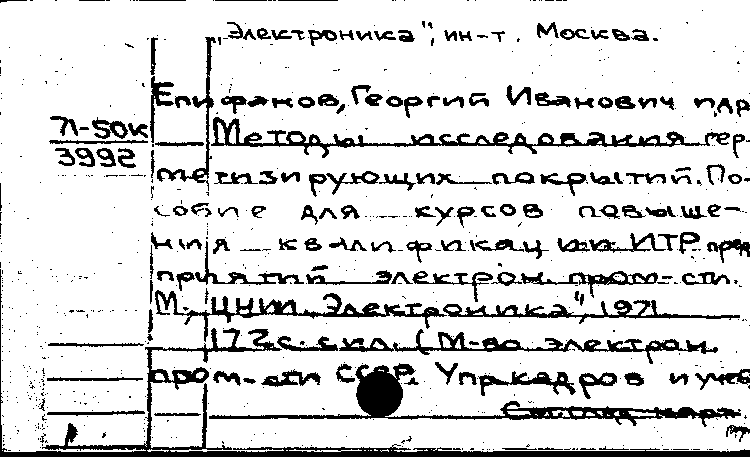 „Электроника", ин-т. Москва.
Епифанов, Георгий Иванович и др
71-50К
Методы исследования гер-
3992
метизирующих покрытий. По-
собие для курсов повыше-
ния квалификации ИТР пред
приятий электрон. пром-сти.
М., ЦНИИ „Электроника", 1971
172 с. с ил. (М-во электрон.
пром-сти СССР. Упр. кадров и учеб